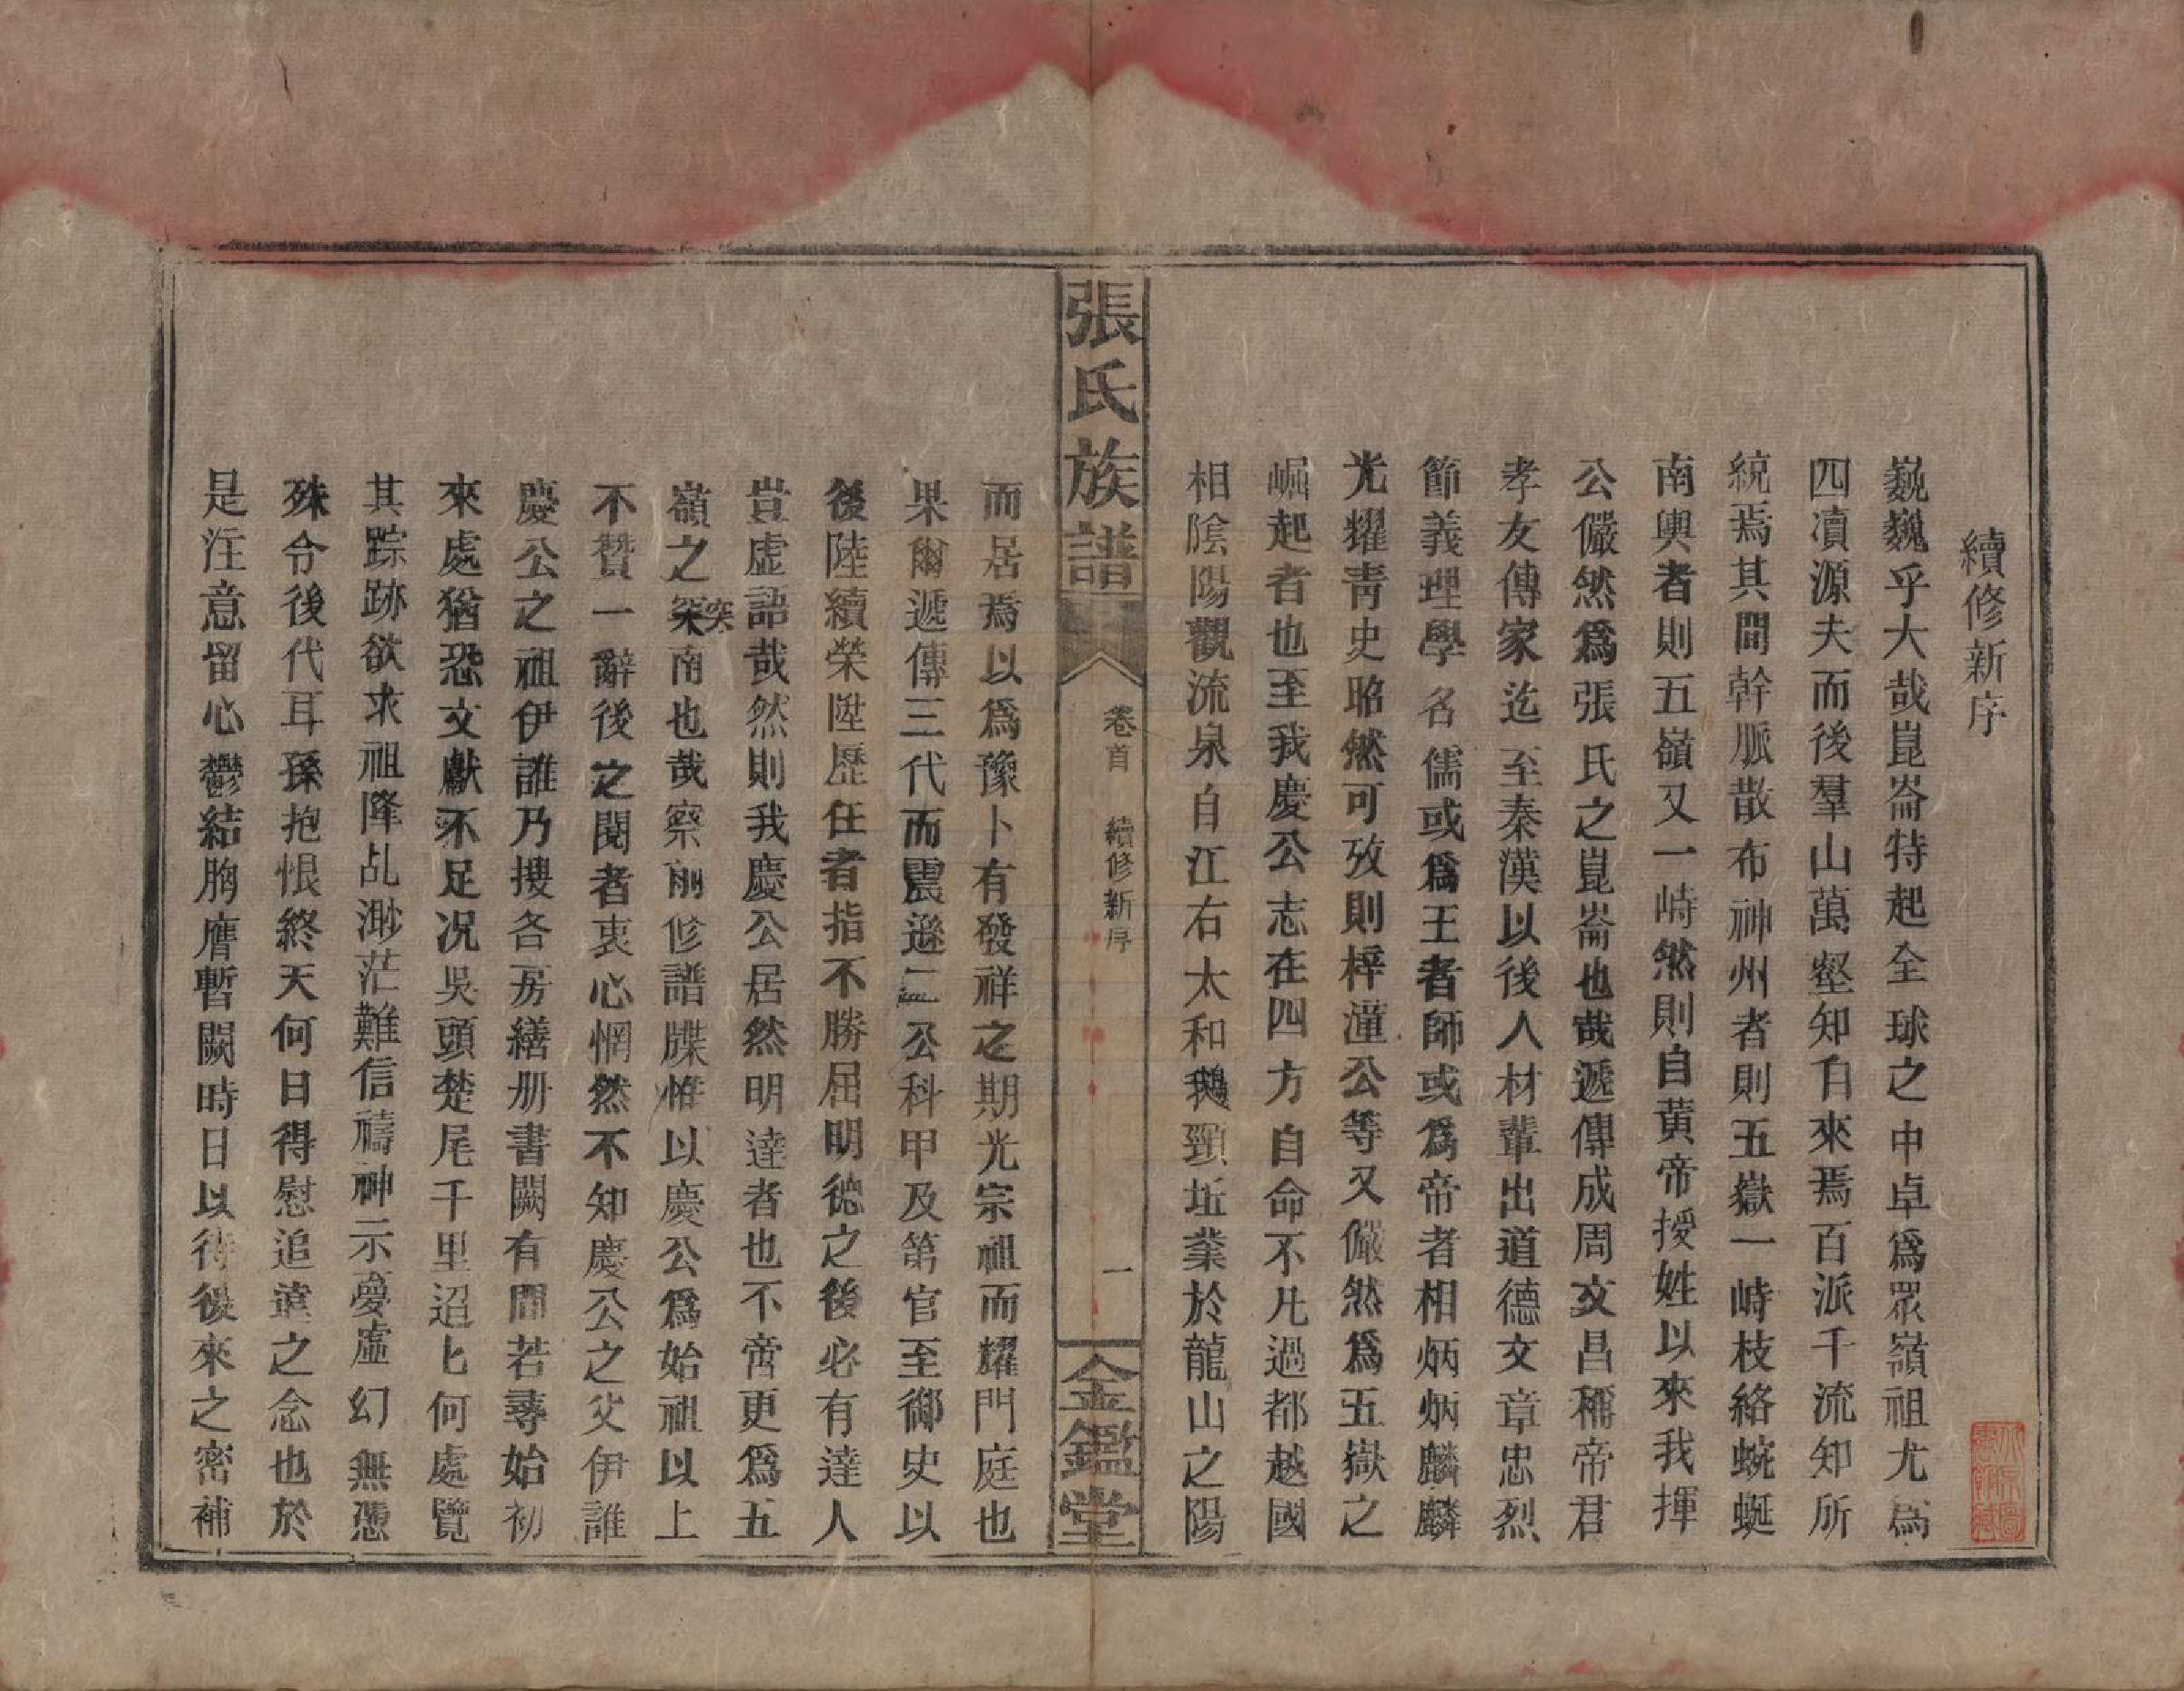 續修新序
巍巍乎大哉崑崙特起全球之中卓爲眾嶺祖尤爲
四瀆源夫而後羣山萬壑知自來焉百派千流知所
統焉其間幹脈散布神州者則五嶽一峙枝絡蜿蜒
南輿者則五嶺又一峙然則自黃帝授姓以來我揮
公儼然爲張氏之崑崙也哉遞傳成周文昌稱帝君
孝友傳家迄至秦漢以後人材輩出道德文章忠烈
節義理學名儒或爲王者師或爲帝者相炳炳麟麟
光耀青史昭然可攷則梓潼公等又儼然爲五嶽之
崛起者也至我慶公志在四方自命不凡過都越國
相陰陽觀流泉自江右太和鵝頸坵業於龍山之陽
張氏族譜 卷首 續修新序 一 金鑑堂
而居焉以爲豫卜有發祥之期光宗祖而耀門庭也
果爾遞傳三代而震遜二公科甲及第官至御史以
後陸續榮陞歷任者指不勝屈明德之後必有達人
豈虛語哉然則我慶公居然明達者也不啻更爲五
嶺之突南也哉察前修譜牒惟以慶公爲始祖以上
突
不贊一辭後之閱者衷心惘然不知慶公之父伊誰
慶公之祖伊誰乃搜各房繕册書闕有間若尋始初
來處猶恐文獻不足况吳頭楚尾千里迢匕何處覽
其踪跡欲求祖降乩渺茫難信禱神示夢虛幻無憑
殊令後代耳孫抱恨終天何日得慰追遠之念也於
是注意留心鬱結胸膺暫闕時日以待後來之密補